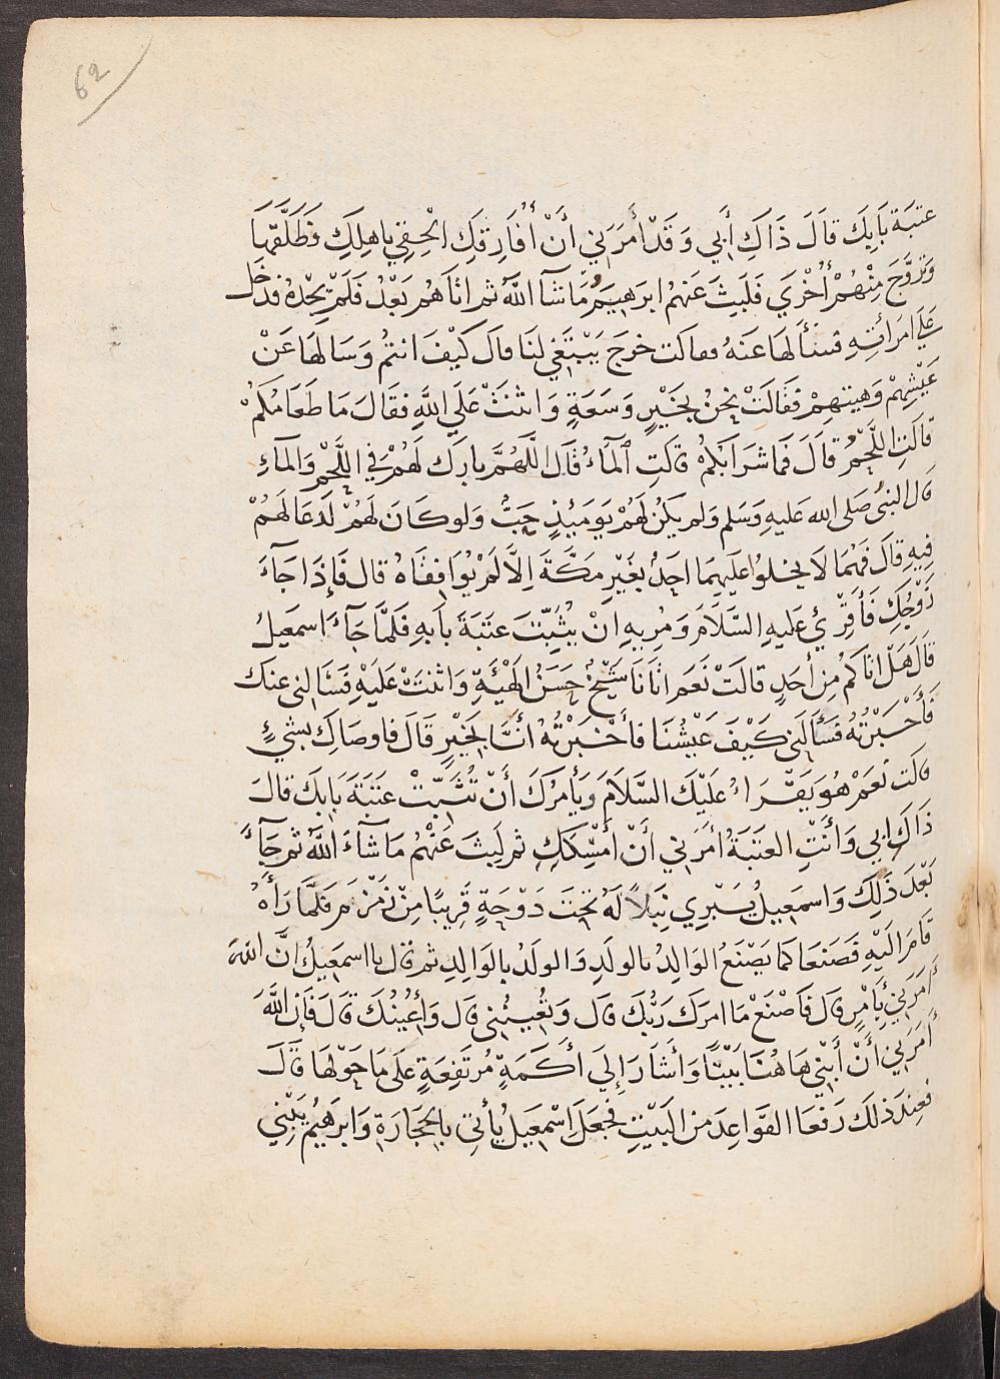 62
عتبَة بَابِكَ قالَ ذَاكِ أَبِي وَقَدْ أَمَرَنِي أَنْ أُفَارِقَكِ الْحِقِي بِاهلِكِ فَطَلَّقَهَا
وَتزَوَّجَ مِنْهُمْ أُخْرَي فَلَبِثَ عَنهُم ابرَهِيمُ مَا شَآءَ اللَّهُ ثم اتاهُم بَعْدُ فَلَمْ يَجِدْهُ فدَخَلَ
عَلَي امرَأتِهِ فسَألهَا عَنهُ فقالت خرجَ يَبْتَغِي لنَا قالَ كَيْفَ انتمُ وَسَالهَا عَنْ
عَيْشِهِمْ وَهيئتهِمْ فقَالَتْ نحنُ بخَيْرٍ وَسَعَةٍ وَاثنَتْ عَلَي اللَّهِ فقَالَ مَا طَعَامُكُمْ
قَالَتِ اللَّحْمُ قَالَ فَمَا شرَابُكُمْ قالَتِ المآءُ قَالَ اللَّهُمَّ بارِك لَهُمْ فِي اللَّحْمِ وَالمآءِ
قال النبىُّ صَلى الله عَليهِ وَسَلم وَلم يَكُنْ لَهُمْ يَومَئِذٍ حَبٌّ وَلو كَانَ لَهُمْ لَدَعَا لَهُمْ
فِيهِ قالَ فَهُمَا لَا يخلوُا عَليهِمَا احَدٌ بغَيْرِ مَكَّةَ الَّا لَمْ يُوَافِقَاهُ قال فَإِذَا جَآءَ
زَوْجُكِ فَأقْرِئِي عَليهِ السَّلَامَ وَمُريهِ انْ يثبِّتَ عتَبَةَ بَابهِ فَلمَّا جَآءَ اسمَعِيلُ
قَالَ هَلْ اتاكُم مِن أَحَدٍ قالَتْ نَعَم اتَانَا شَيْخٌ حَسَنُ الهَيْئَةِ وَاثنَتْ عَلَيْهِ فسَالنِى عنكَ
فَأخْبَرْتُهُ فسَألَنِى كَيْفَ عَيْشُنَا فأخْبَرْتُهُ أَنَّا بخَيْرٍ قَالَ فاوصَاكِ بشيْءٍ
قالَت نعَمْ هُوَ يَقْرَاءُ عَلَيْكَ السَّلَامَ وَيأمُرُكَ أَنْ تُثبِّتْ عَتَبَةَ بَابِكَ قالَ
ذَاكِ ابِي وَأَنْتِ العتَبَةُ امَرَنِي أَنْ أُمْسِكَكِ ثم لَبِثَ عَنْهُمْ مَا شَآءَ اللَّهُ ثم جَآءَ
بَعْدَ ذَلِكَ وَاسمَعِيلُ يَبْرِي نبَلاً لَهُ تحتَ دَوْحَةٍ قَرِيبًا مِنْ زَمْزَمَ فلمَّا رَأهُ
قَامَ الَيْهِ فصَنَعَا كمَا يَصْنَعُ الوَالِدُ بالولَدِ وَالولَدُ بالوَالِدِ ثم قال يا اسمَعِيلُ انَّ اللهَ
أَمَرَنِي بِأَمْرٍ قالَ فَاصْنَعْ مَا امرَكَ رَبُّكَ قالَ وَتُعِينُنِى قالَ وَأُعِينُكَ قالَ فَإِنَّ اللَّهَ
أَمَرَنِي أَنْ أَبْنِي هَاهُنَا بَيْتًا وَأَشَارَ إِلَي أَكَمَةٍ مُرتَفِعَةٍ عَلَى مَا حَوْلهَا قالَ
فعِندَ ذلكَ رَفعَا القوَاعِدَ من البَيْتِ فجَعَلَ اِسْمَعِيلُ يأتي بالحجَارَةِ وَابرَهِيمُ يَبْنِي